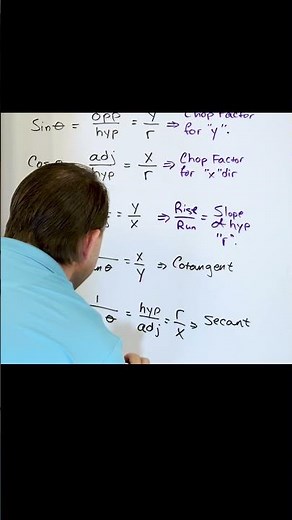 Sinθ = opp/hyp = y/r ⇒ Chop Factor for "y".
Cosθ adj/hyp = x/r ⇒ Chop Factor for "x" dir
= y/x ⇒ Rise/Run = Slope of hyp "r".
θ = x/y ⇒ Cotangent
1/θ = hyp/adj = r/x ⇒ Secant